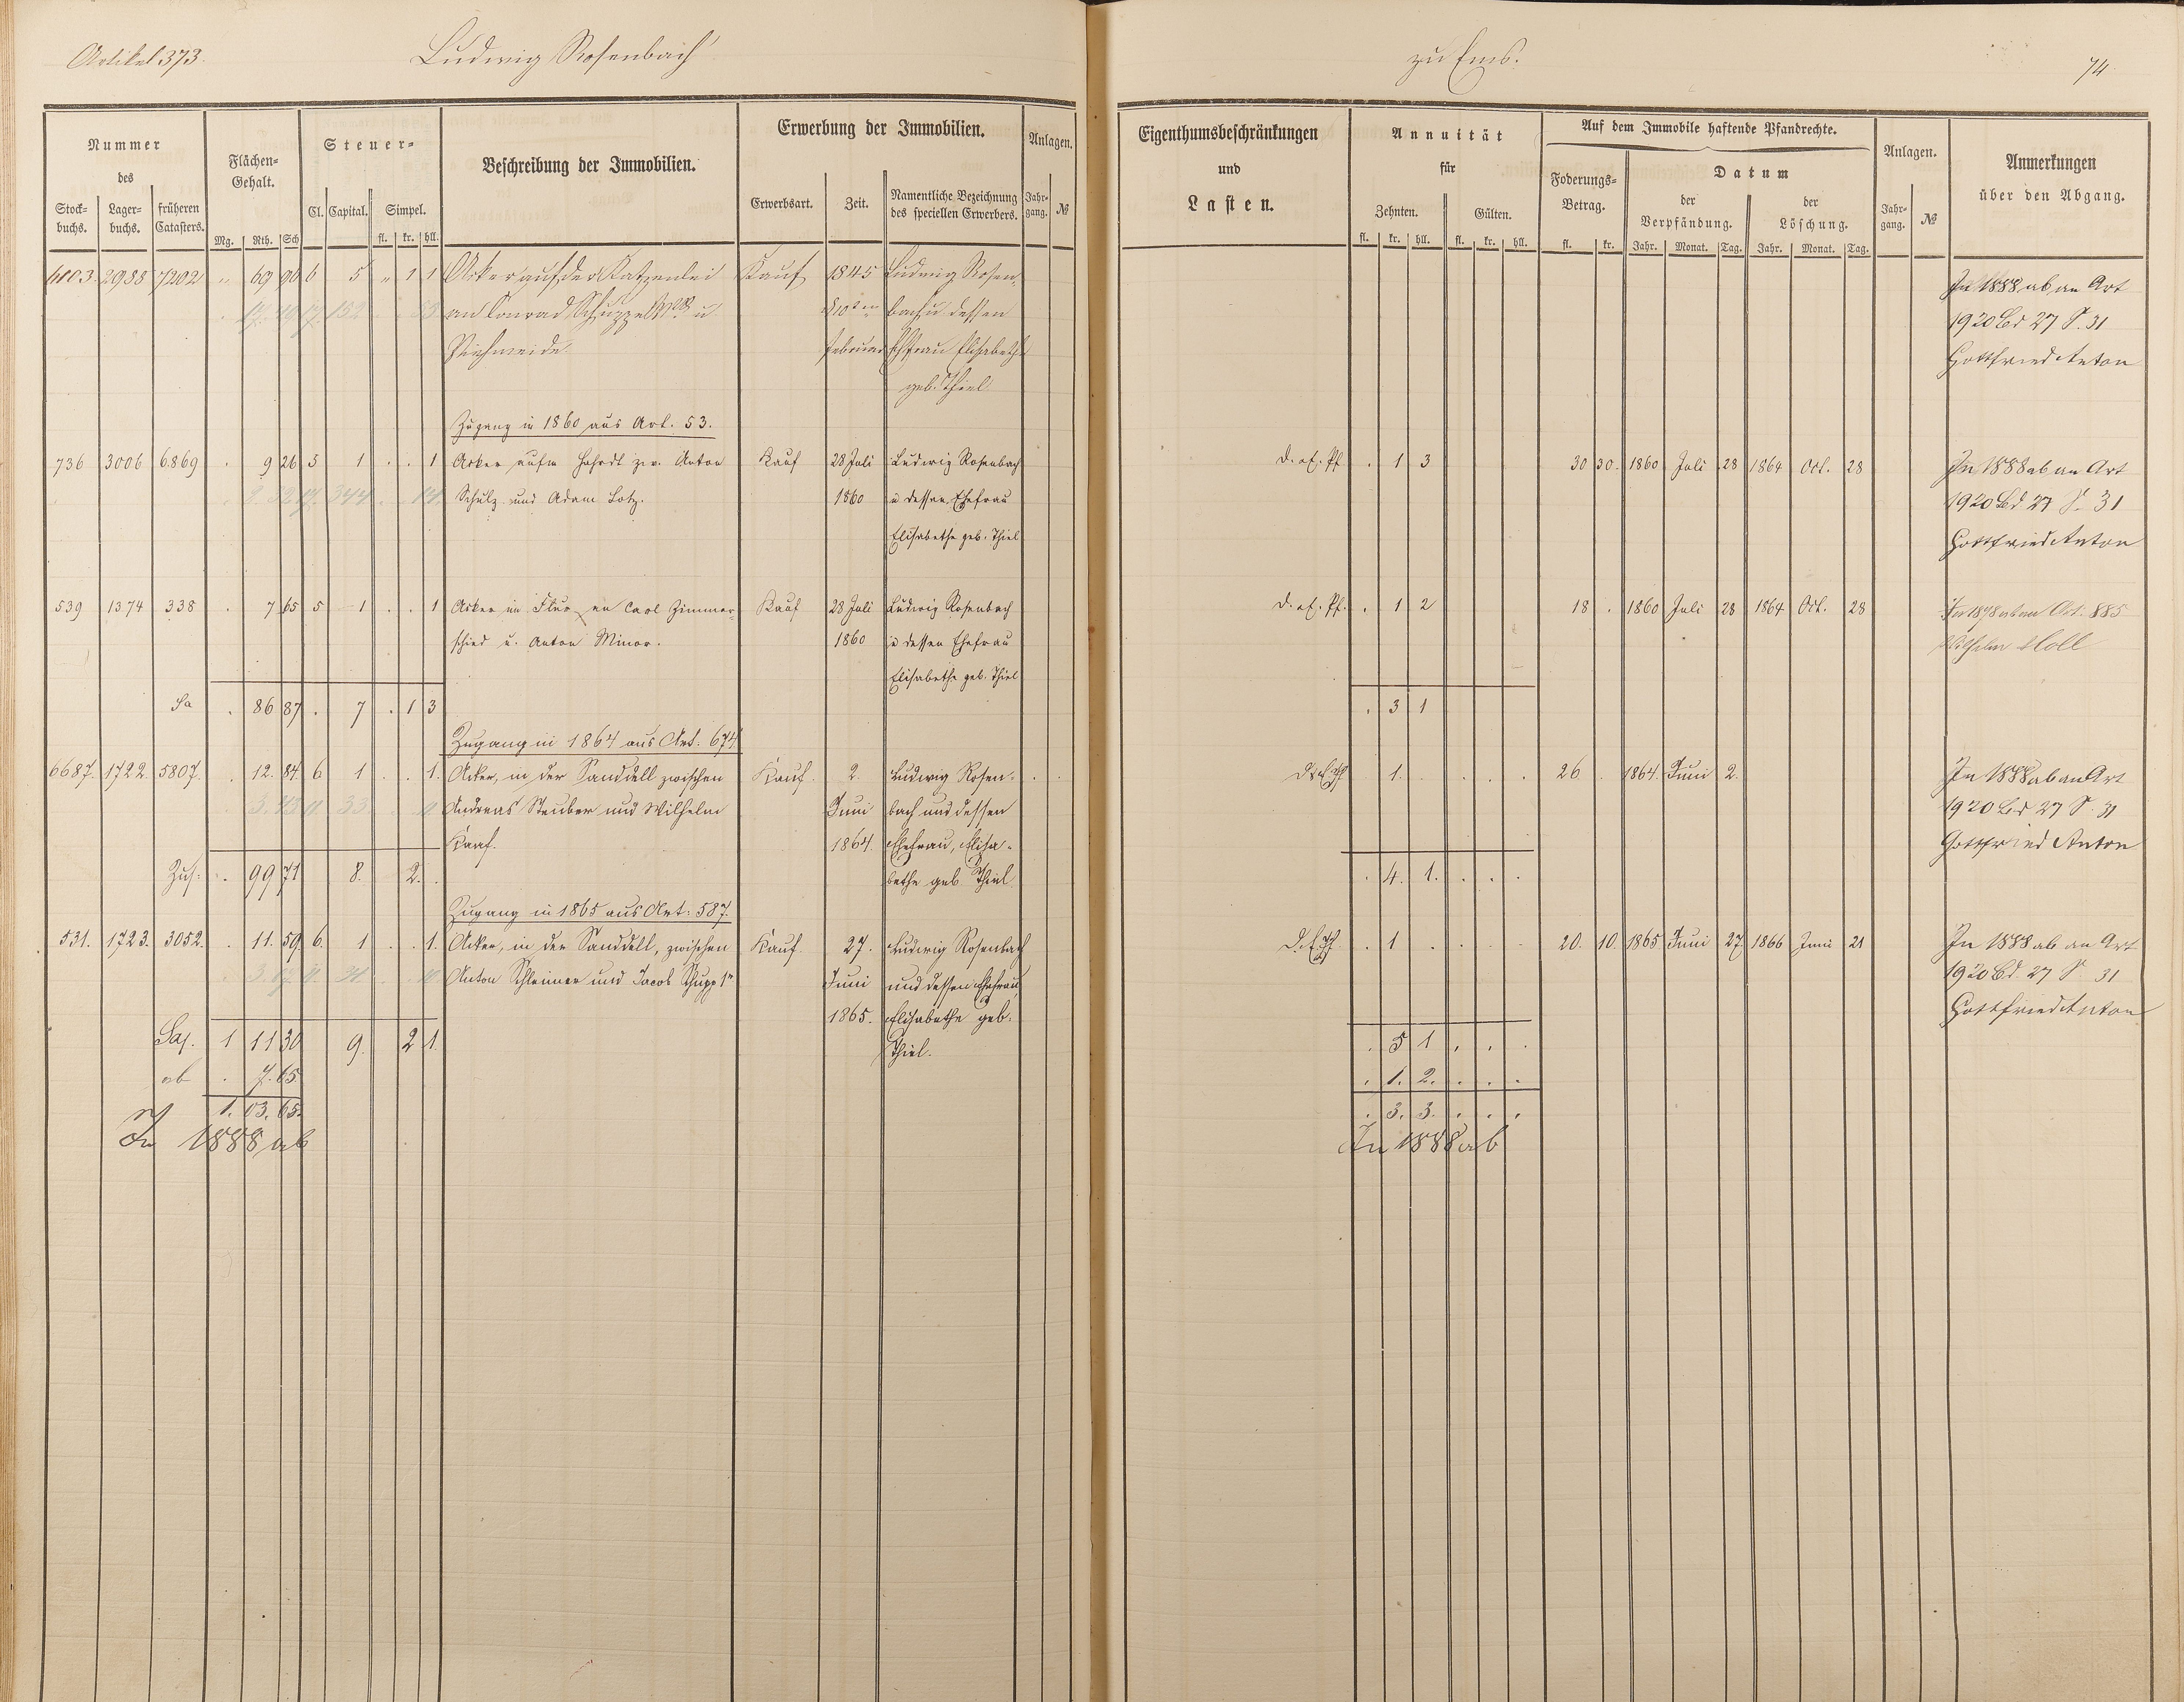 Artikel 373.
Ludwig Rosenbach
zu Ems.
74
Nummer
des
Stock-
buchs.
Lager-
buchs.
früheren
Catasters.
Flächen-
Gehalt.
Mg. Rth. Sch
Steuer-
Cl. Capital. Simpel.
fl. kr. hll.
Beschreibung der Immobilien.
Erwerbung der Immobilien.
Erwerbsart. Zeit.
Namentliche Bezeichnung
des speciellen Erwerbers.
Anlagen.
Jahr-
gang. №
Eigenthumsbeschränkungen
und
Lasten.
Annuität
für
Zehnten. Gülten.
fl. kr. hll. fl. kr. hll.
Auf dem Immobile haftende Pfandrechte.
Foderungs-
Betrag.
fl. kr.
Datum
der
Verpfändung.
der
Löschung.
Jahr. Monat. Tag. Jahr. Monat. Tag.
Anlagen.
Jahr-
gang. №
Anmerkungen
über den Abgang.
6003. 2988 7202 " 69 96 6 5 " 1 1 Acker auf der Katzenlei Kauf 1845 Ludwig Rosen- In 1888 ab an Art
an Conrad Schupp u bach u dessen 1920 Bd 27 S. 31
Viehweide. Februar Ehfrau Elisabeth Gottfried Anton
geb. Thiel
Zugang in 1860 aus Art. 53.
736 3006 6869 . 9 26 3 1 . . 1 Acker zw. Anton Kauf 28 Juli Ludwig Rosenbach . 1 3 30 30. 1860 Juli 28 1864 Oct. 28 In 1888 ab an Art
2. 32 17. 344 14. Schulz und Adam Lotz. 1860 u dessen Ehefrau 1920 Bd 27 S. 31
Elisabethe geb. Thiel Gottfried Anton
539 1374 338 . 7 65 5 1 . . 1 Acker im Flur an Carl Zimmer- Kauf 28 Juli Ludwig Rosenbach . 1 2 18 . 1860 Juli 28 1864 Oct. 28 In 1878 ab an Art. 885
schied u. Anton Minor. 1860 u dessen Ehefrau Wilhelm Moll
Elisabethe geb. Thiel
Sa . 86 87 . 7 . 1 3 . 3 1
Zugang in 1864 aus Art. 674
6687. 1722. 5807. . 12. 84. 6 1 . . 1. Acker, in der Sanddell zwischen Kauf. 2. Ludwig Rosen- 1. 26 . 1864. Juni 2. In 1888 ab an Art
Andreas Steuber und Wilhelm Juni bach und dessen 1920 Bd 27 S. 31
Karf. 1864. Ehefrau, Elisa- Gottfried Anton
bethe geb Thiel
Zus. . 99 71 8. 2. . 4. 1.
Zugang in 1865 aus Art. 587.
531. 1723. 3052. . 11. 59. 6. 1 . . 1. Acker, in der Sanddell, zwischen Kauf. 27. Ludwig Rosenbach . 1 20. 10. 1865 Juni 27. 1866 Juni 21 In 1888 ab an Art
Anton Schleimer und Jacob Schupp 1r Juni und dessen Ehefrau 1920 Bd. 27 S. 31
1865. Elisabethe geb. Gottfried Anton
Thiel.
Zus. 1 11 30 9. 2 1. . 5 1
ab . 7. 65. . 1. 2.
1. 03. 65. . 3. 3.
In 1888 ab In 1888 ab